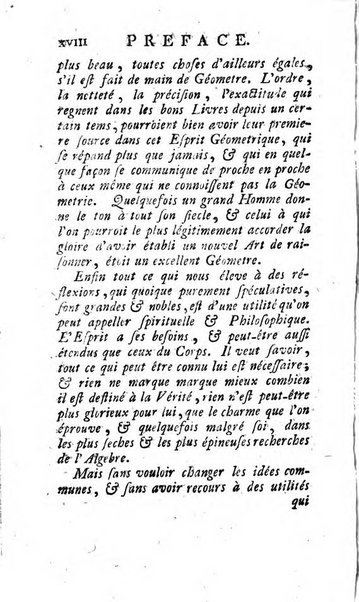 xviii PREFACE.
plus beau, toutes choses d'ailleurs égales,
s'il est fait de main de Géometre. L'ordre,
la netteté, la précision, l'exactitude qui
regnent dans les bons Livres depuis un cer-
tain tems, pourroient bien avoir leur premie-
re source dans cet Esprit Géometrique, qui
se répand plus que jamais, & qui en quel-
que façon se communique de proche en proche
à ceux même qui ne connoissent pas la Géo-
metrie. Quelquefois un grand Homme don-
ne le ton à tout son siecle, & celui à qui
l'on pourroit le plus légitimement accorder la
gloire d'avoir établi un nouvel Art de rai-
sonner, étoit un excellent Géometre.
Enfin tout ce qui nous éleve à des ré-
flexions, qui quoique purement spéculatives,
sont grandes & nobles, est d'une utilité qu'on
peut appeller spirituelle & Philosophique.
L'Esprit a ses besoins, & peut-être aussi
étendus que ceux du Corps. Il veut savoir,
tout ce qui peut être connu lui est nécessaire;
& rien ne marque mieux combien
il est destiné à la Vérité, rien n'est peut-être
plus glorieux pour lui, que le charme que l'on
éprouve, & quelquefois malgré soi, dans
les plus seches & les plus épineuses recherches
de l'Algebre.
Mais sans vouloir changer les idées com-
munes, & sans avoir recours à des utilités
qui